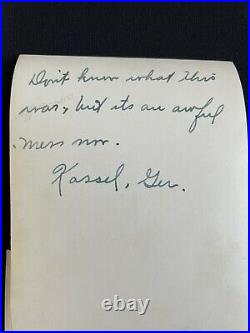 Don't know what this
was, but its an awful
mess now.
Kassel, Ger.